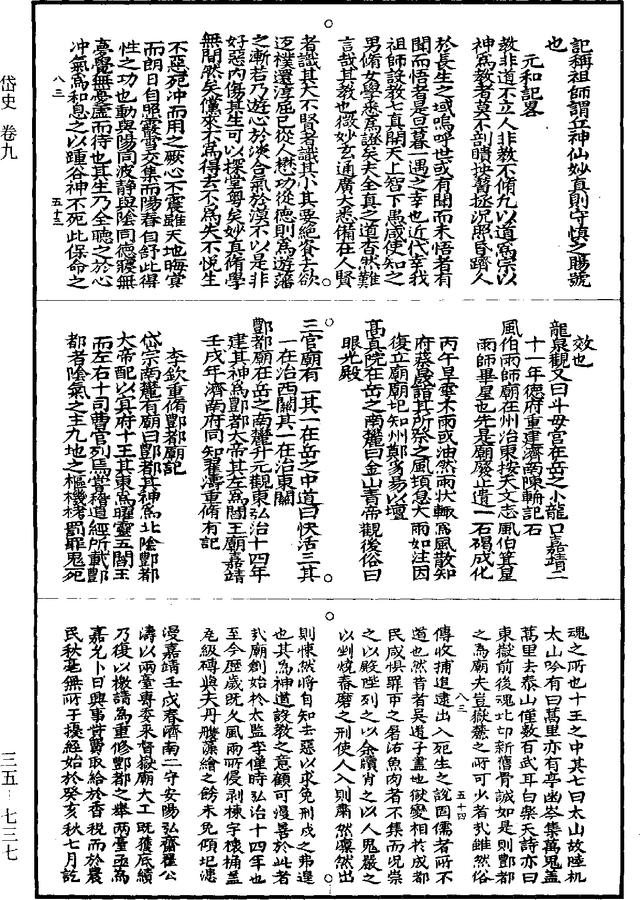 記稱祖師謂丘神仙妙真則守慎之賜號
也
元和記畧
教非道不立人非教不脩九以道為宗以
神為教者莫不剖賾抉瞽拯沉照昏躋人
於長生之域嗚呼世或有聞而未悟者有
聞而悟者是旦暮一遇之幸也近代幸我
祖師設教七真開天上智下愚咸使知之
男脩女學悉為證矣夫全真之道杳然難
言哉其教也微妙玄通廣大悉備在人賢
者識其大不賢者識其小其要絕資去欲
返樸還淳屈己從人懋功從德則為遊藩
之漸若乃遊心於淡合氣於漠不以是非
好惡內傷其生可以探堂粤矣妙真脩學
無間然矣儻來不為得去不為失不悅生
不惡死冲而用之厥心不震雖天地晦冥
而朗日自照嚴雪交集而陽春自舒此得
性之功也動與陽同波靜與陰同德寢無
夢覺無憂虛而待也其生乃全聽之於心
冲氣為和息之以踵谷神不死此保命之
八三 五十三
效也
龍泉觀又曰斗母宮在岳之小龍口嘉靖二
十一年德府重建濟南陳輪記石
風伯雨師廟在州治東按天文志風伯箕星
雨師畢星也先是廟廢止遺一石碣成化
丙午旱雩不雨或油然雨狀輒為風散知
府蔡晟詣其所祭之風頃息大雨如注因
復立廟廟圮知州鄭豸易以壇
高真院在岳之南麓曰金山青帝觀後俗曰
眼光殿
三官廟有二其一在岳之中道曰快活三其
一在治西關其一在治東關
酆都廟在岳之南麓升元觀東弘治十四年
建其神為酆都大帝其左為閻王廟嘉靖
壬戌年濟南府同知翟濤重脩有記
李欽重脩酆都廟記
岱宗南麓有廟曰酆都其神為北陰酆都
大帝配以真府十王其東為曜靈五閻王
而左右十司曹官列焉嘗稽道經所載酆
都者陰氣之主九地之樞機拷罰罪鬼死
魂之所也十王之中其七曰太山故陸机
太山吟有曰萬里亦有亭幽岑集萬鬼蓋
萬里去泰山僅數百武耳白樂天詩亦曰
東嶽前後魂北邙新舊骨誠如是則酆都
之為廟夫豈嶽麓之所可少者哉雖然俗
八三 五十四
傳收捕追逮出入死生之說固儒者所不
道也然昔者吳道子畫地獄變相於成都
民咸懼罪市之屠沽魚肉者不集而況崇
之以殿陛列之以金碧肖之以人鬼嚴之
以剉燒舂磨之刑使人入則肅然凜然出
則悚然將自知去惡以求免刑戍之弗違
也其為神道設教之意顧可漫喜於此者
哉廟創始於太監李僅時弘治十四年也
至今歷歲既久風雨所侵剥棟宇榱桷蓋
瓦級磚與夫丹雘藻繪之飾未免傾圮漶
漫嘉靖壬戌春濟南二守安陽弘齋翟公
濤以兩臺專委來督嶽廟大工既獲底績
乃復以檄請為重修酆都之舉兩臺亟為
嘉允卜日興事貲費取給於香稅而於農
民秋毫無所于擾經始於癸亥秋七月訖
岱史 卷九
三五—七三七